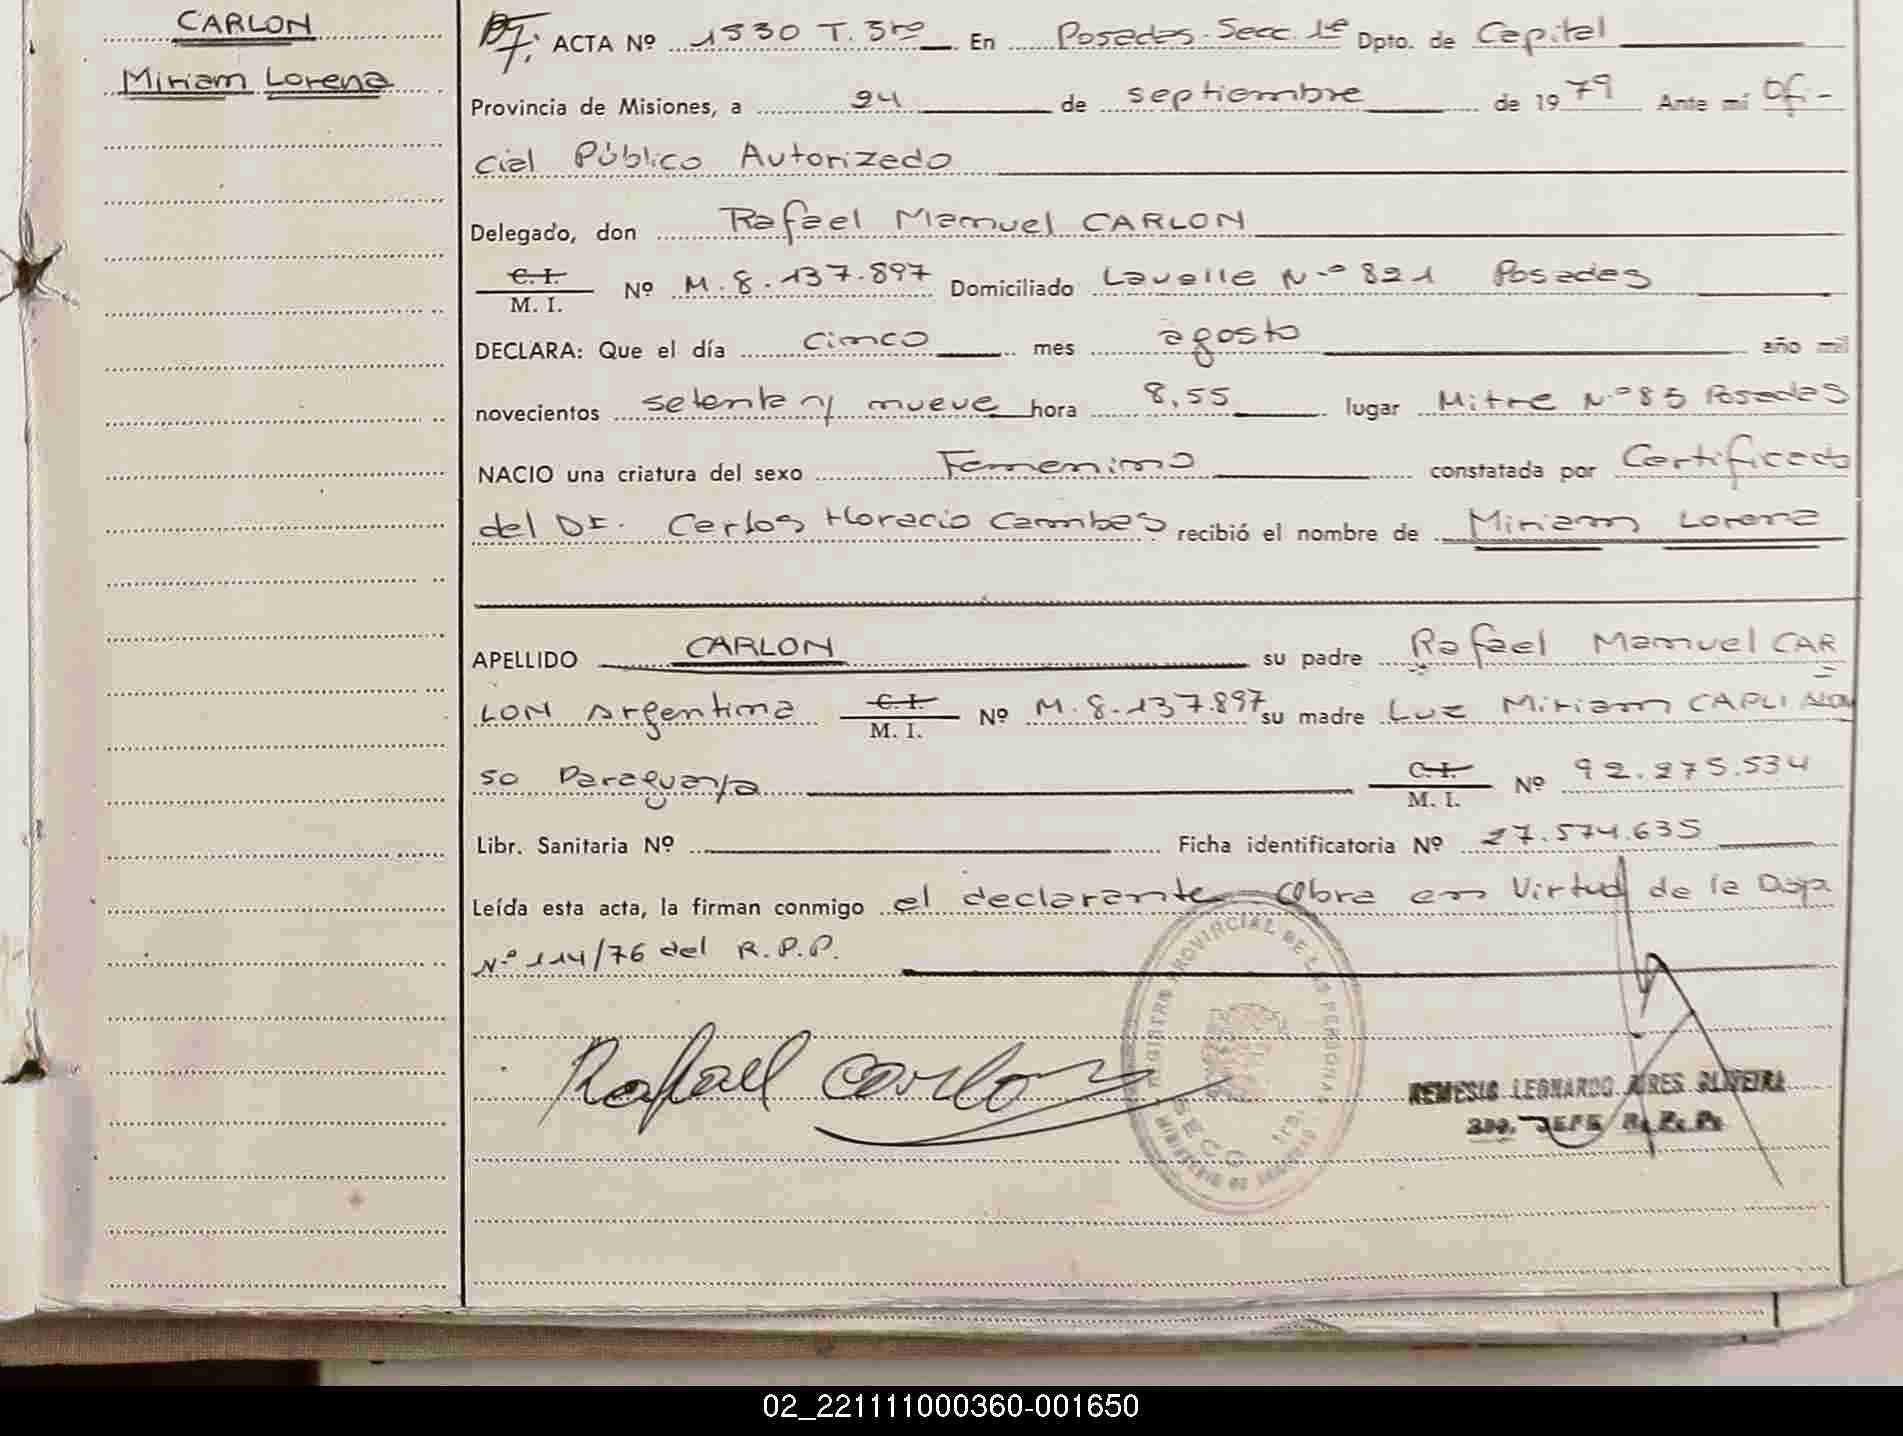 CARLON
Miriam Lorena
ACTA Nº 1530 T. 3ro En Posadas. Secc. 1ª Dpto. de Capital
Provincia de Misiones, a 24 de septiembre de 1979 Ante mí Ofi-
cial Público Autorizado
Delegado, don Rafael Manuel CARLON
C.I.
M. I. Nº M. 8.137.897 Domiciliado Lavalle Nº 821 Posadas
DECLARA: Que el día cinco mes agosto año mil
novecientos setenta y nueve hora 8,55 lugar Mitre Nº 85 Posadas
NACIO una criatura del sexo Femenino constatada por Certificado
del Dr. Carlos Horacio Cambas recibió el nombre de Miriam Lorena
APELLIDO CARLON su padre Rafael Manuel CAR
LON Argentina C.I. M. I. Nº M. 8.137.897 su madre Luz Miriam
so Paraguaya C.I. M. I. Nº 92.275.534
Libr. Sanitaria Nº Ficha identificatoria Nº 27.574.635
Leída esta acta, la firman conmigo el declarante Obra en Virtud de la Disp.
Nº 114/76 del R.P.P.
REGISTRO PROVINCIAL DE LAS PERSONAS
SECC. 1ra.
MINISTERIO DE GOBIERNO
Rafael Carlon
NEMESIO LEONARDO AIRES OLIVEIRA
2do. JEFE R. P. P.
02_221111000360-001650